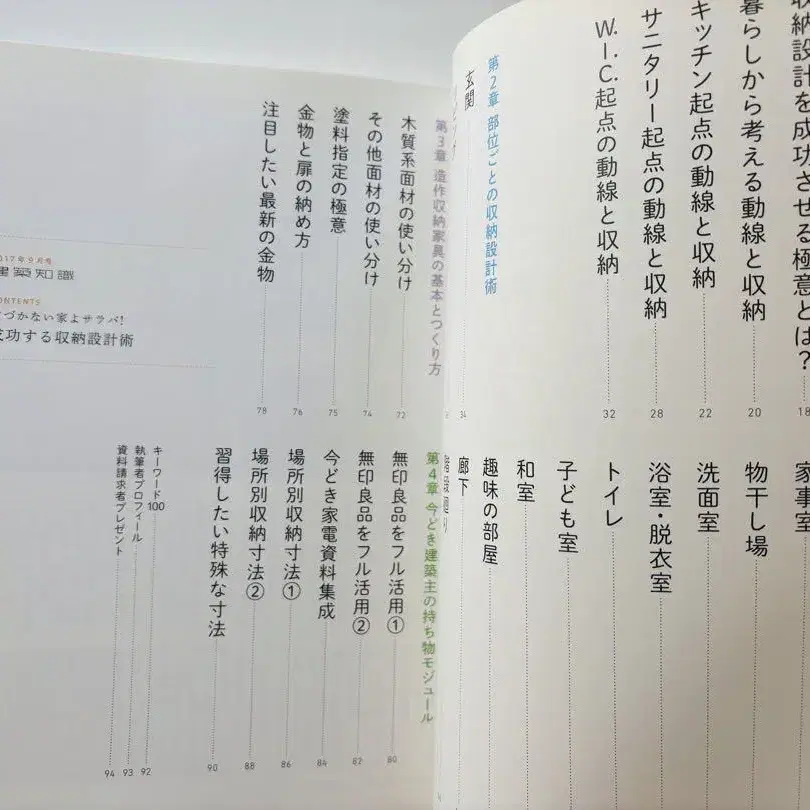 収納設計を成功させる極意とは? 18
暮らしから考える動線と収納 20
キッチン起点の動線と収納 22
サニタリー起点の動線と収納 28
W.I.C.起点の動線と収納 32
第2章 部位ごとの収納設計術
玄関 34
家事室
物干し場
洗面室
浴室・脱衣室
トイレ
子ども室
和室
趣味の部屋
廊下
第3章 造作収納家具の基本とつくり方
木質系面材の使い分け 72
その他面材の使い分け 74
塗料指定の極意 75
金物と扉の納め方 76
注目したい最新の金物 78
第4章 今どき建築主の持ち物モジュール
無印良品をフル活用① 80
無印良品をフル活用② 82
今どき家電資料集成 84
場所別収納寸法① 86
場所別収納寸法② 88
習得したい特殊な寸法 90
キーワード100 92
執筆者プロフィール 93
資料請求者プレゼント 94
017年9月号
建築知識
ONTENTS
づかない家よサラバ!
功する収納設計術